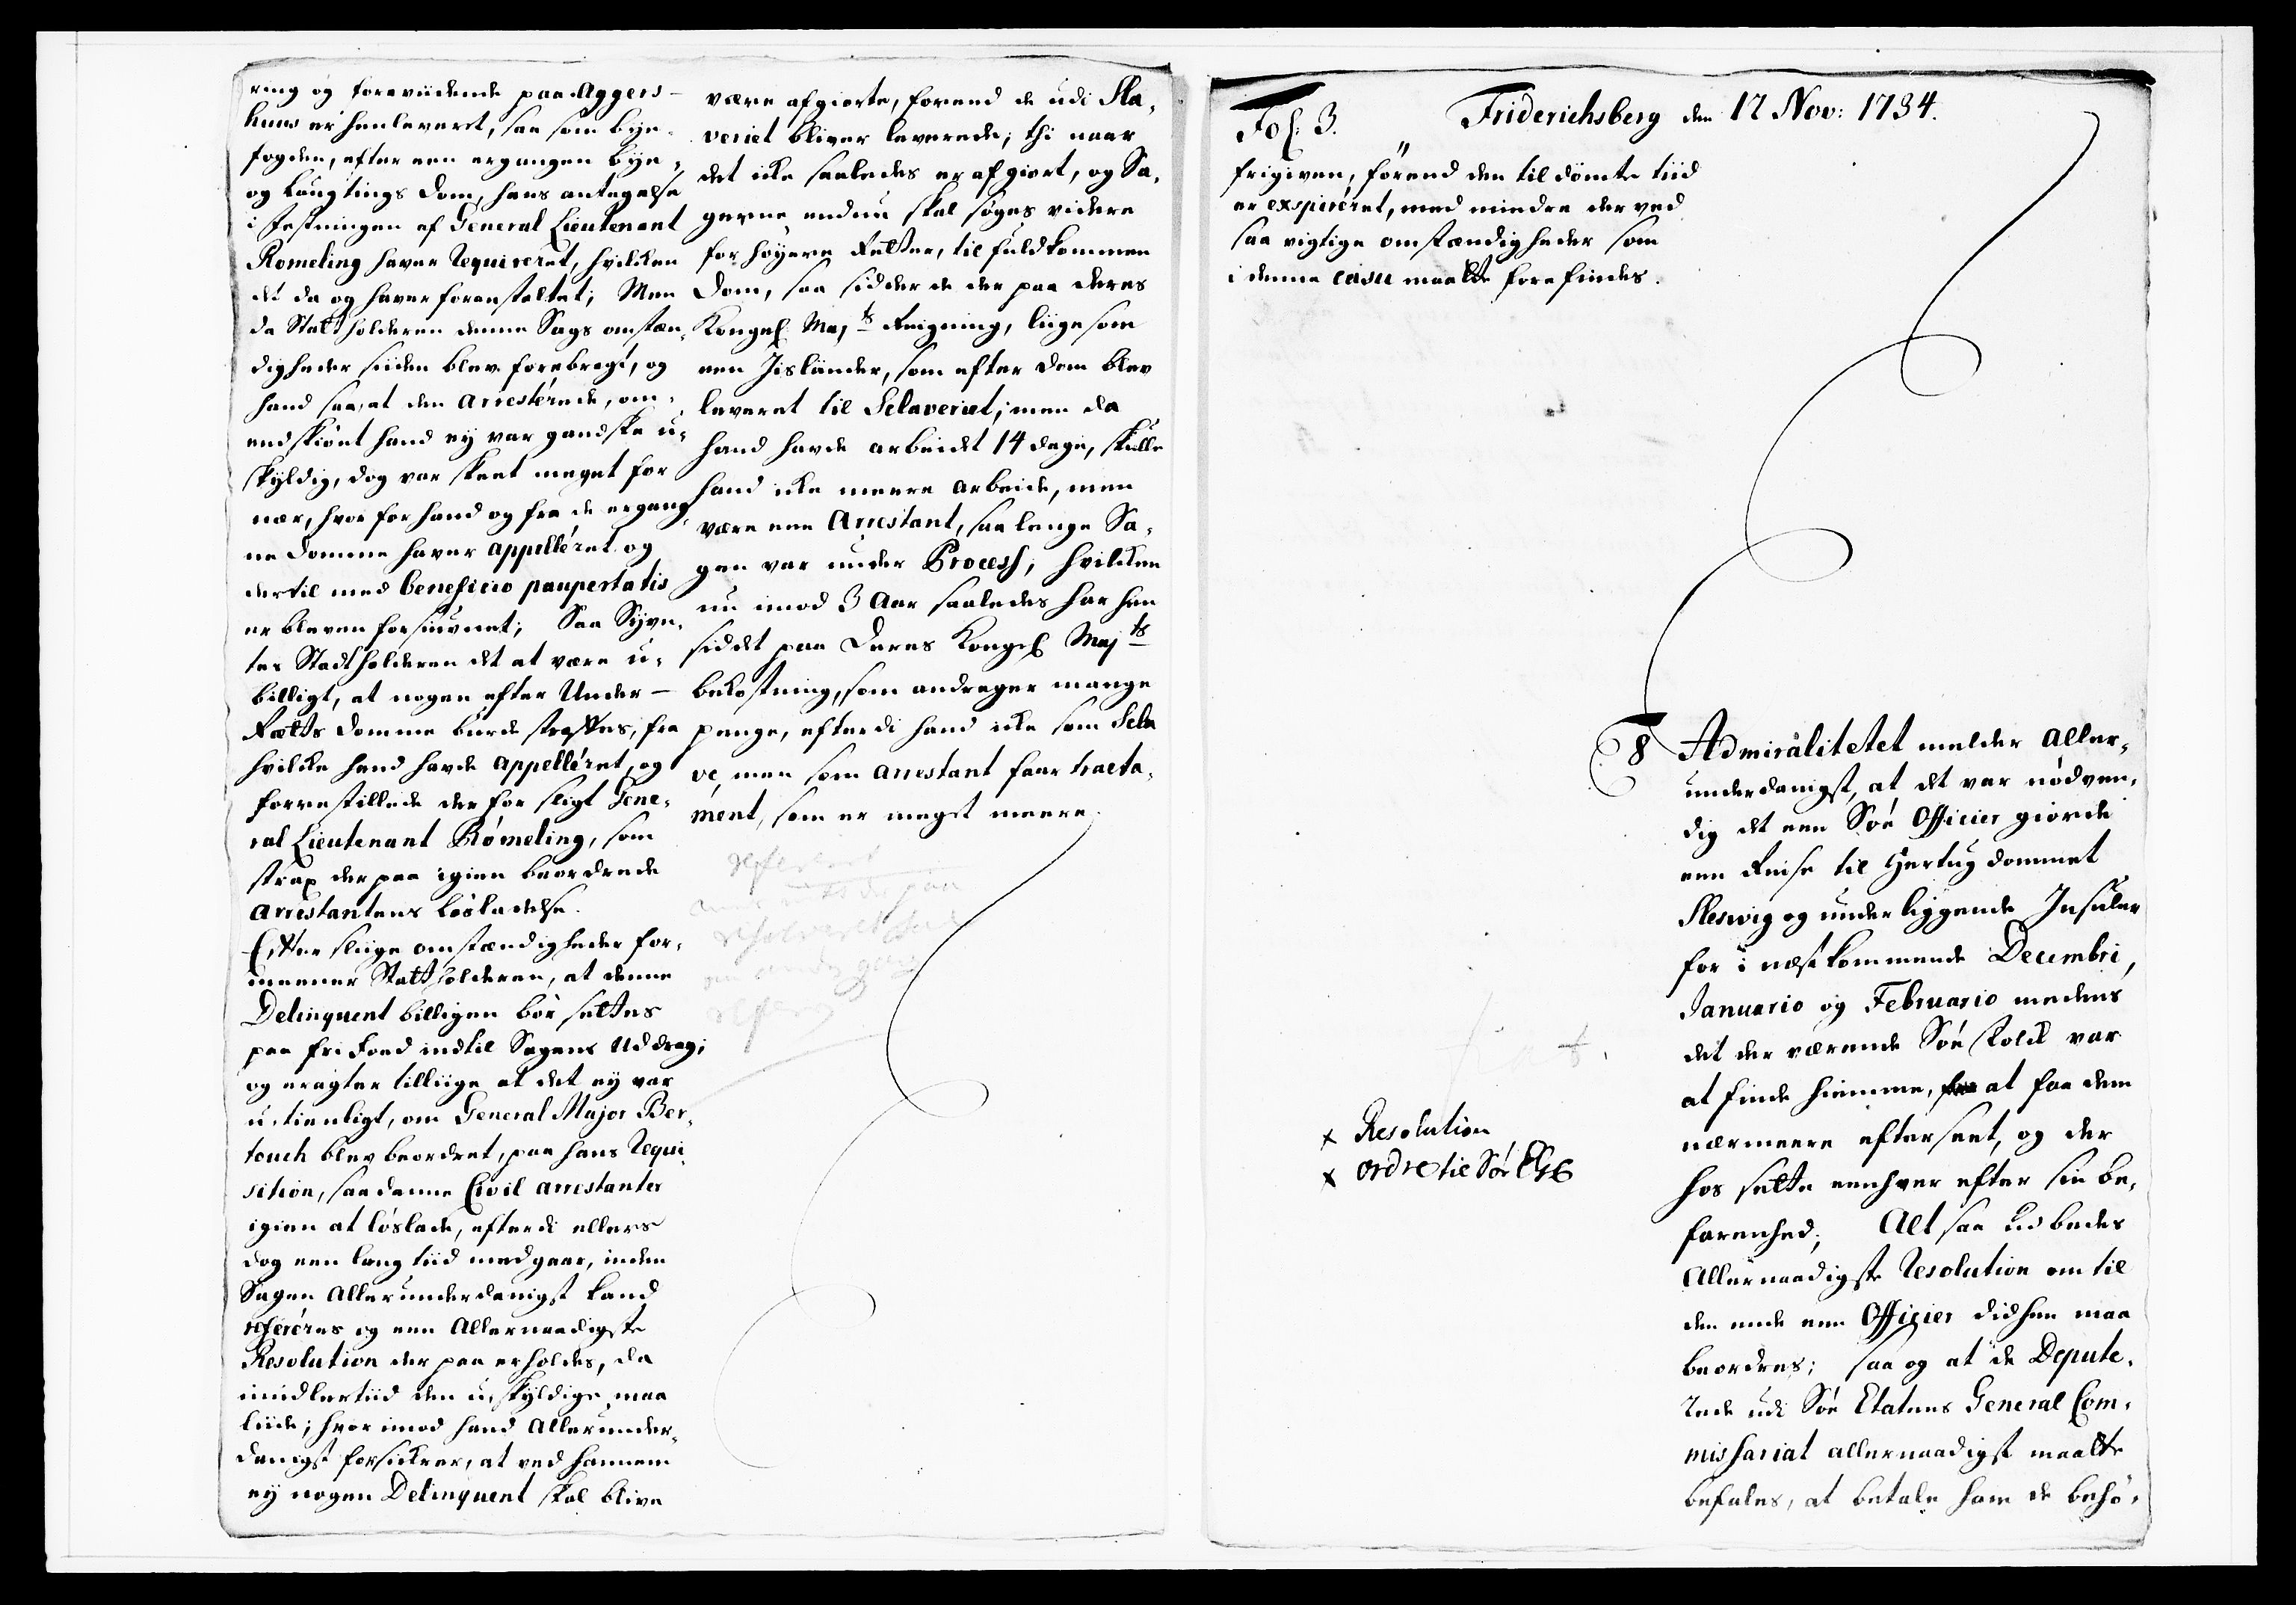 ring og forevidende paa Aggers-
huus er henleveret, saa som bÿe-
fogden, efter een ergangen bÿe-
og Laugtings Dom, hans antagelse
i Festningen af General Lieutenant
Romeling haver requireret, hvilken
det da og haver foranstaltet; Men
da Statholderen denne Sags omstæn-
digheder siiden blev forebragt, og
hand saa, at den Arresterede, om-
endskiönt hand ey var gandske u-
skÿldig, dog var skeet meget for
nær, hvor for hand og fra de ergang
ne Domme haver appelléret og
dertil med beneficio paupertatis
er bleven forsiunet; Saa Sÿn-
tes Stadtholderen det at være u-
billigt, at nogen efter Under-
Rætts Domme burde straffes, fra
hvilke hand havde appelléret, og
forrestillede der for sligt Gene-
ral Lieutenant Römeling, som
strax der paa igien beordrede
Arrestantens Lösladelse.
Efter sliige omstændigheder for-
meener Statholderen, at denne
Delinquent billigen bör settes
paa fri Foed indtil Sagens Uddrag;
og eragter tilliige at det ej var
u-tienligt, om General Major Ber-
touch blev beordret, paa hans Requi
sition, saadanne Civil arrestanter
igien at löslade, efterdi ellers
dog een lang tiid medgaar, inden
Sagen Allerunderdanigst kand
referéres og een Allernaadigste
Resolution der paa erholdes, da
imidlertiid den u-skÿldige maa
liide; hvor imod hand Allerunder-
danigst forsikrer, at ved hannem
eÿ nogen Delinquent skal blive
være afgiorte, forend de udi Sla-
veriet bliver leverede; thi naar
det icke saaledes er afgiort, og Sa-
gerne endnu skal söges videre
for höyere Retter, til fuldkommen
Dom, saa sidder de der paa Deres
Kongel. Maj.ts Reigning, liigesom
een Jisländer, som efter Dom blev
leveret til Sclaveriet; men da
hand havde arbeidet 14 dage, skulle
hand icke meere arbeide, men
være een Arrestant, saa lenge Sa-
gen var under Process, hvilken
nu imod 3 Aar saaledes har hen
siddet paa Deres Kongel. Maj.ts
bekostning, som andrager mange
penge, efterdi hand icke som Scla
ve, men som arrestant faar tracta-
ment, som er meget meere.
Fol: 3. Friderichsberg den 17 Nov: 1734.
frigiven, förend den til dömte tiid
er exspiréret, med mindre der ved
saa vigtige omstændigheder som
i denne casu maatte forefindes.
8 Admiralitetet melder aller-
underdanigst, at det var nödven-
dig det een Söe Officier giorde
een Reise til Hertugdommet
Sleswig og underliggende Insuler
for i næstkommende Decembri,
Januario og Februario medens
det der værende Söe folck var
at finde hiemme, at faa dem
nærmere efterseet, og der
hos sætte eenhver efter sin be-
farenhed; Altsaa udbedes
Allernaadigste Resolution om til
den ende een Officier didhen maa
beordres; saa og at de Depute-
rede udi Söe Etatens General Com-
missariat allernaadigst maatte
befales, at betale ham de behö-
x Resolution
x ordre til Söe